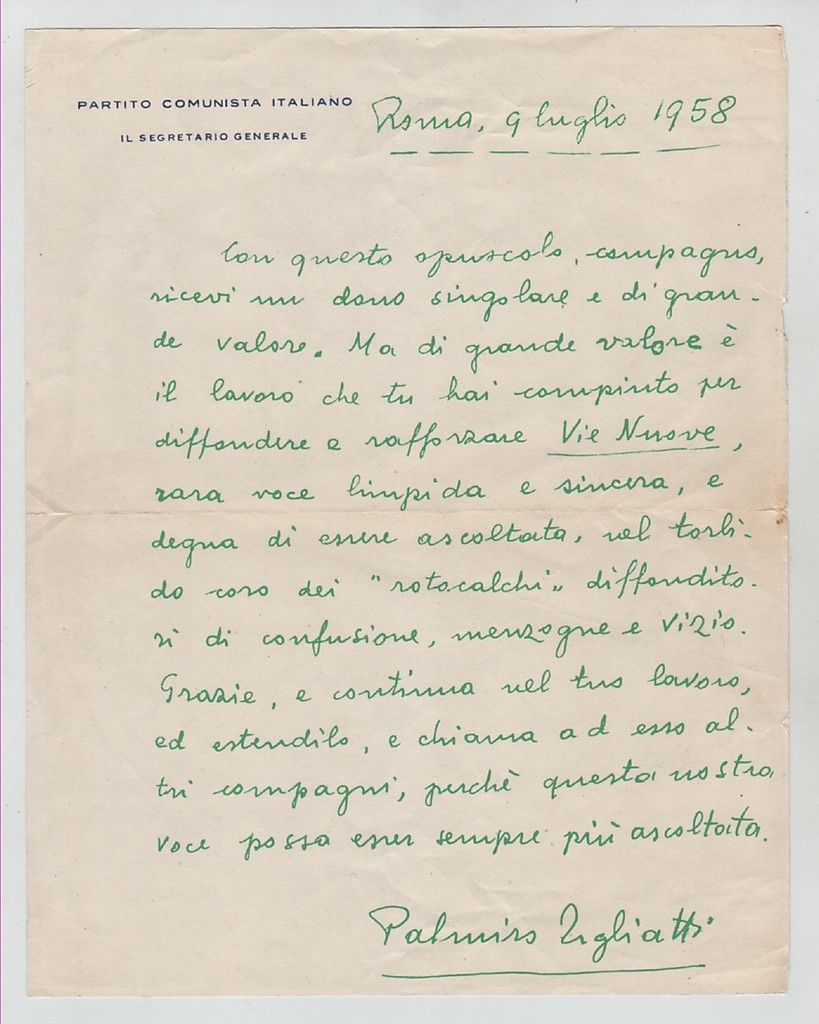 PARTITO COMUNISTA ITALIANO
IL SEGRETARIO GENERALE
Roma, 9 luglio 1958
Con questo opuscolo, compagno,
ricevi un dono singolare e di gran-
de valore. Ma di grande valore è
il lavoro che tu hai compiuto per
diffondere e rafforzare Vie Nuove,
rara voce limpida e sincera, e
degna di essere ascoltata, nel torbi-
do coro dei "rotocalchi" diffondito-
ri di confusione, menzogne e vizio.
Grazie, e continua nel tuo lavoro,
ed estendilo, e chiama ad esso al-
tri compagni, perchè questa nostra
voce possa esser sempre più ascoltata.
Palmiro Togliatti